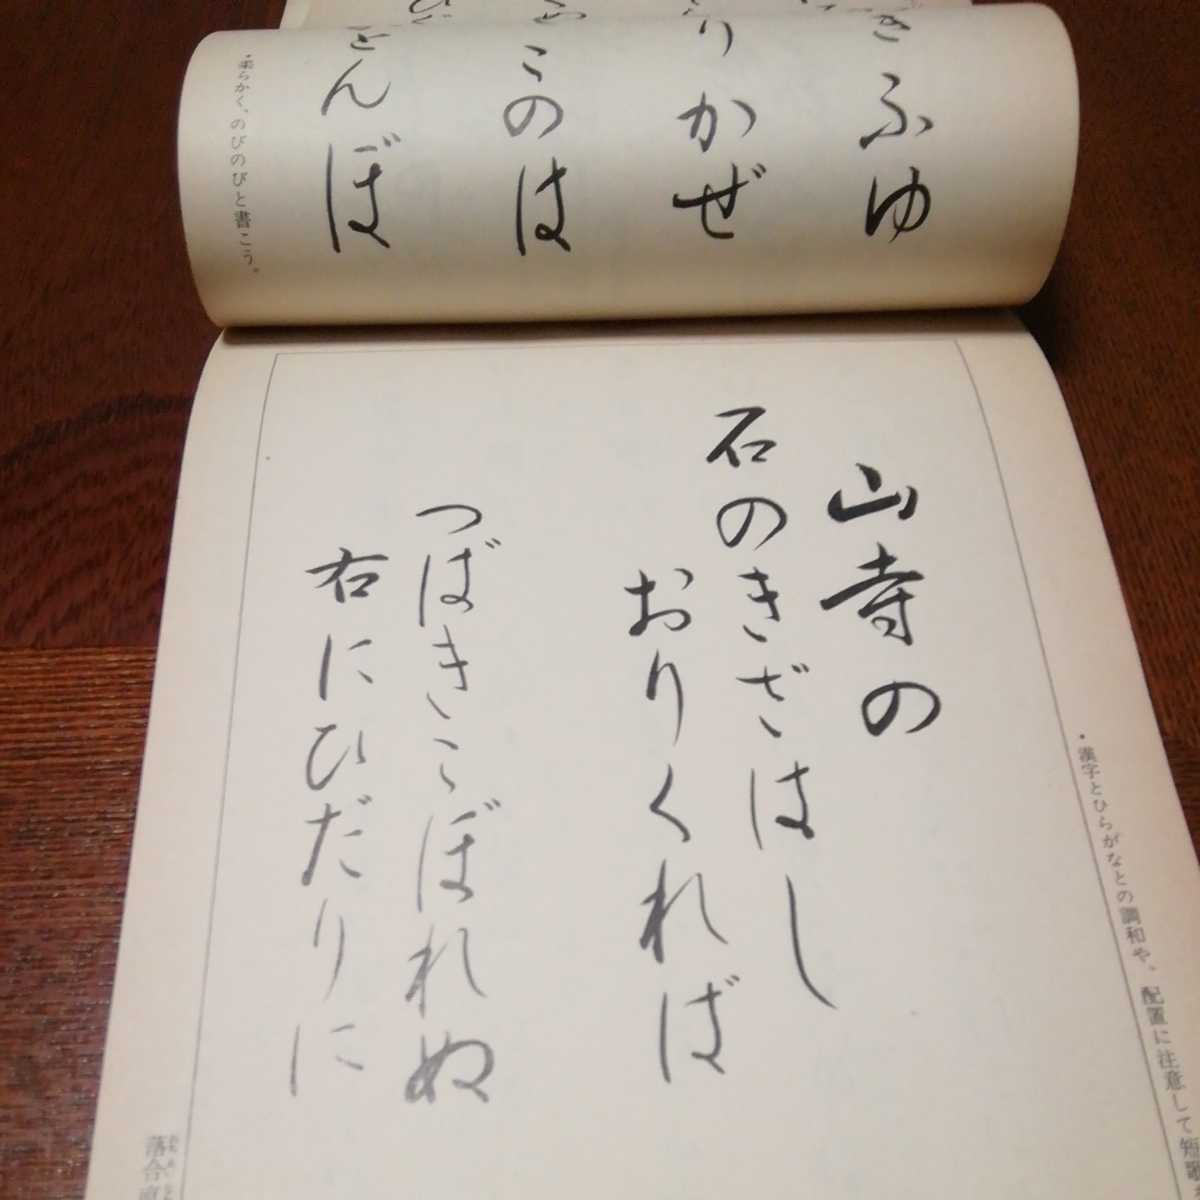 ふゆ
りかぜ
このは
とんぼ
・柔らかく、のびのびと書こう。
・漢字とひらがなとの調和や、配置に注意して短歌
山寺の
石のきざはし
おりくれば
つばきこぼれぬ
右にひだりに
落合直